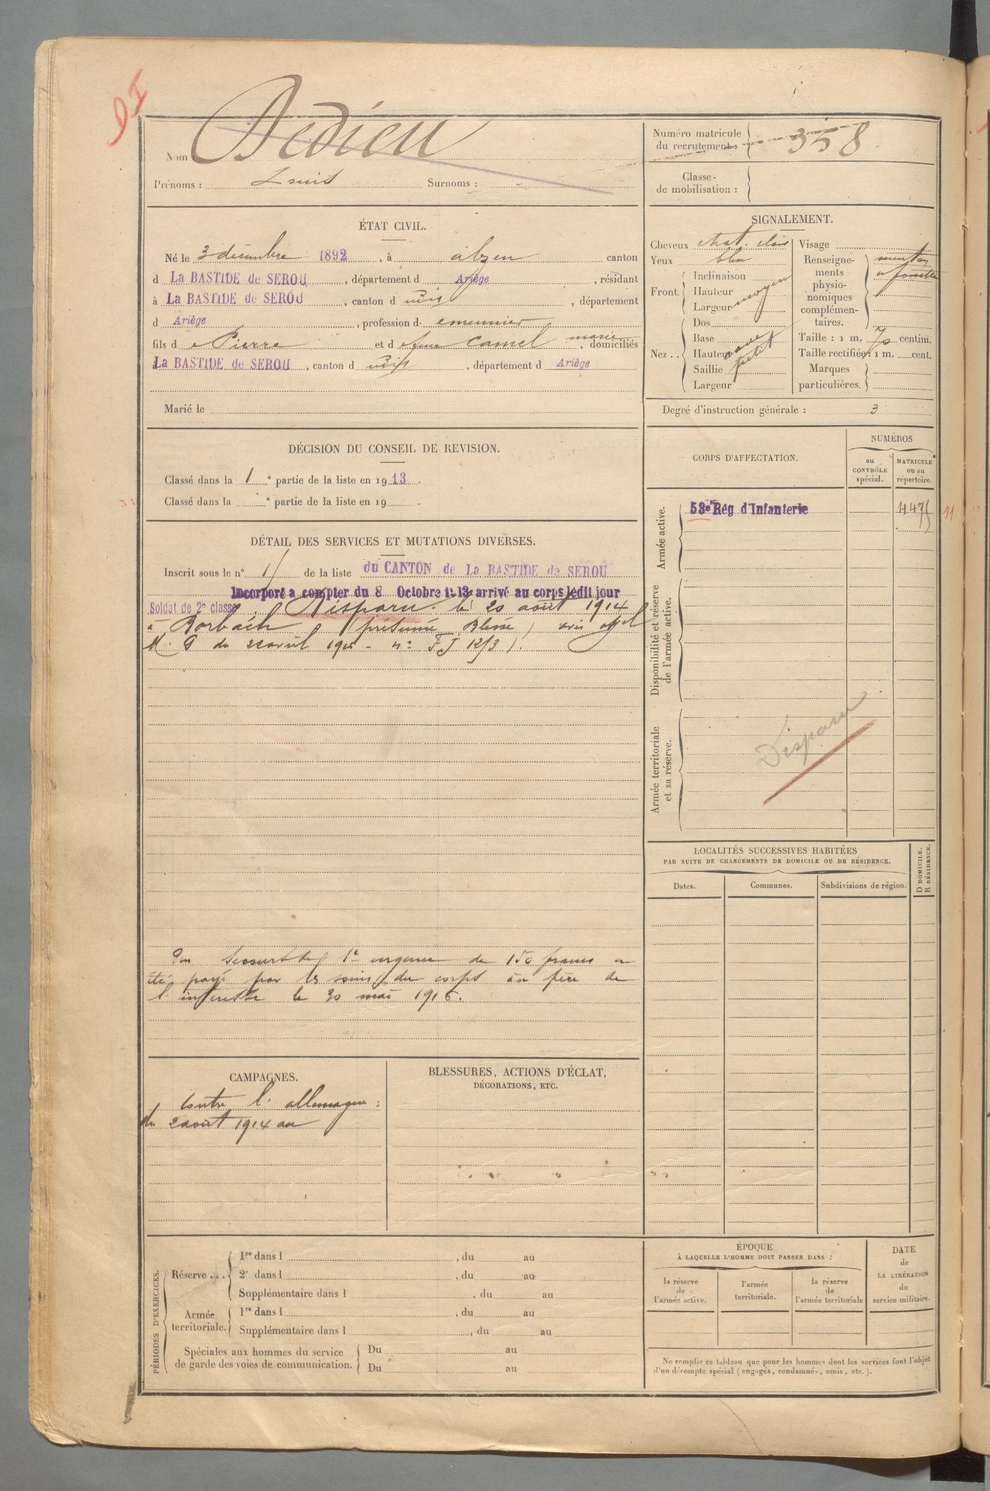 DI
Nom Dedieu
Prénoms : Louis Surnoms :
Numéro matricule du recrutement : 358
Classe de mobilisation :
ÉTAT CIVIL.
Né le 3 décembre 1892, à alzen canton
d La BASTIDE de SEROU, département d Ariège, résidant
à La BASTIDE de SEROU, canton d , département
d Ariège, profession d
fils d e Pierre et d e Camel marie, domiciliés
La BASTIDE de SEROU, canton d , département d Ariège
Marié le
SIGNALEMENT.
Cheveux chat. clair
Yeux bleu
Front. Inclinaison
Hauteur
Largeur moyen
Nez . . Dos
Base
Hauteur
Saillie petit
Largeur
Visage
Renseignements physionomiques complémentaires. menton à fossette
Taille : 1 m. 70 centim.
Taille rectifiée : 1 m. cent.
Marques particulières.
Degré d'instruction générale : 3
DÉCISION DU CONSEIL DE REVISION.
Classé dans la 1 e partie de la liste en 1913.
Classé dans la e partie de la liste en 19 .
CORPS D'AFFECTATION.
NUMÉROS
au CONTRÔLE spécial.
MATRICULE ou au répertoire.
Armée active.
53e Rég d'Infanterie
11
Disponibilité et réserve de l'armée active.
Armée territoriale et sa réserve.
Disparu
DÉTAIL DES SERVICES ET MUTATIONS DIVERSES.
Inscrit sous le n° de la liste du CANTON de La BASTIDE de SEROU
Incorporé à compter du 8 Octobre 1913 arrivé au corps ledit jour
Soldat de 2e classe. Disparu le 20 août 1914
à Rorbach (présumé Blessé) avis offel
M. G du avril
Un secours de 1re urgence de 150 francs a
été payé par les soins du corps au père de
l'intéressé le 30 mai 1916.
LOCALITÉS SUCCESSIVES HABITÉES
PAR SUITE DE CHANGEMENTS DE DOMICILE OU DE RÉSIDENCE.
Dates.
Communes.
Subdivisions de région.
D DOMICILE.
R RÉSIDENCE.
CAMPAGNES.
Contre l'allemagne :
du 2 août 1914 au
BLESSURES, ACTIONS D'ÉCLAT,
DÉCORATIONS, ETC.
PÉRIODES D'EXERCICES.
Réserve . . . 1re dans l , du au
2e dans l , du au
Supplémentaire dans l , du au
Armée territoriale. 1re dans l , du au
Supplémentaire dans l , du au
Spéciales aux hommes du service de garde des voies de communication. Du au
Du au
ÉPOQUE
À LAQUELLE L'HOMME DOIT PASSER DANS :
la réserve de l'armée active.
l'armée territoriale.
la réserve de l'armée territoriale
DATE de LA LIBÉRATION du service militaire.
Ne remplir ce tableau que pour les hommes dont les services font l'objet
d'un décompte spécial (engagés, condamnés, omis, etc.).